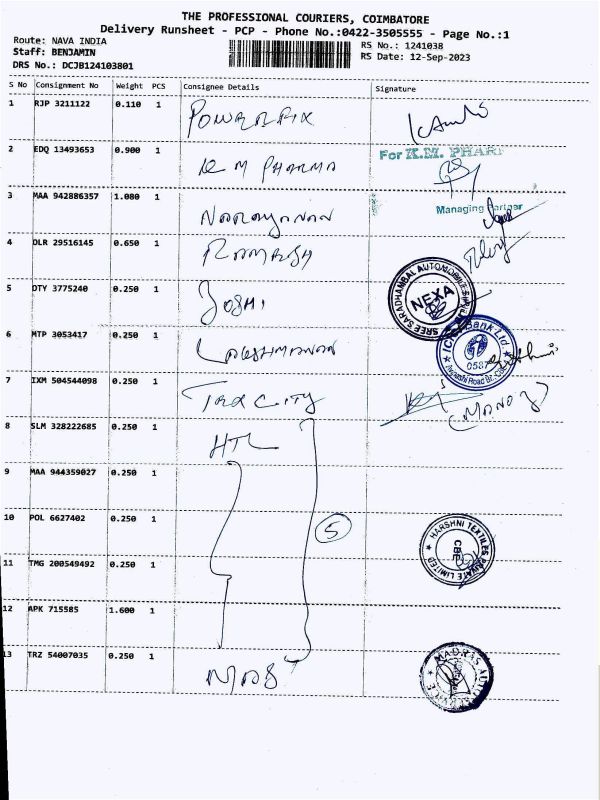 THE PROFESSIONAL COURIERS, COIMBATORE
Delivery Runsheet - PCP - Phone No.:0422-3505555 - Page No.:1
Route: NAVA INDIA
RS No.: 1241038
Staff: BENJAMIN
RS Date: 12-Sep-2023
DRS No.: DCJB124103801
S No Consignment No Weight PCS Consignee Details Signature
1 RJP 3211122 0.110 1 POWERFIX
2 EDQ 13493653 0.900 1 K M PHARMA
For K.M. PHAR
3 MAA 942886357 1.080 1 NARAYANAN
Managing Partner
4 DLR 29516145 0.650 1 RAMESH
5 DTY 3775240 0.250 1 JOSHI
SREE SARADHAMBAL AUTOMOBILES
NEXA
6 MTP 3053417 0.250 1 LAKSHMANAN
ICICI Bank Ltd
0587
7 IXM 504544098 0.250 1
(MANOJ)
8 SLM 328222685 0.250 1 HTL
9 MAA 944359027 0.250 1
5
10 POL 6627402 0.250 1
HARSHNI TEXTILES PRIVATE LIMITED
CBE
11 TMG 200549492 0.250 1
12 APK 715585 1.600 1
13 TRZ 54007035 0.250 1 MAS
MADRAS AUTO SERVICE